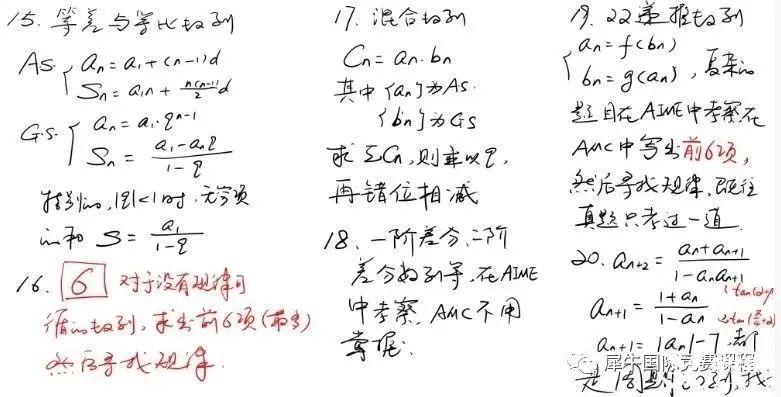 15. 等差与等比数列
A.S. { an = a1 + (n-1)d
Sn = a1n + n(n-1)/2 d
G.S. { an = a1·q^(n-1)
Sn = (a1 - anq)/(1 - q)
特别的, |q|<1时, 无穷项
的和 S = a1/(1 - q)
16. 6 对于没有规律可
循的数列, 求出前6项(最多)
然后寻找规律.
17. 混合数列
Cn = an·bn
其中{an}为A.S.
{bn}为G.S
求ΣCn, 则乘以q,
再错位相减
18. 一阶差分、二阶
差分数列等, 在AIME
中考察, AMC不用
掌握.
19. 22递推数列
{ an = f(bn)
bn = g(an), 复杂的
题目在AIME中考察在
AMC中写出前6项,
然后寻找规律. 既往
真题只考过一道.
20. an+2 = (an + an+1)/(1 - anan+1)
an+1 = (1 + an)/(1 - an)
an+1 = |an| - 7, 都
是周期数列, 找
犀牛国际竞赛课程